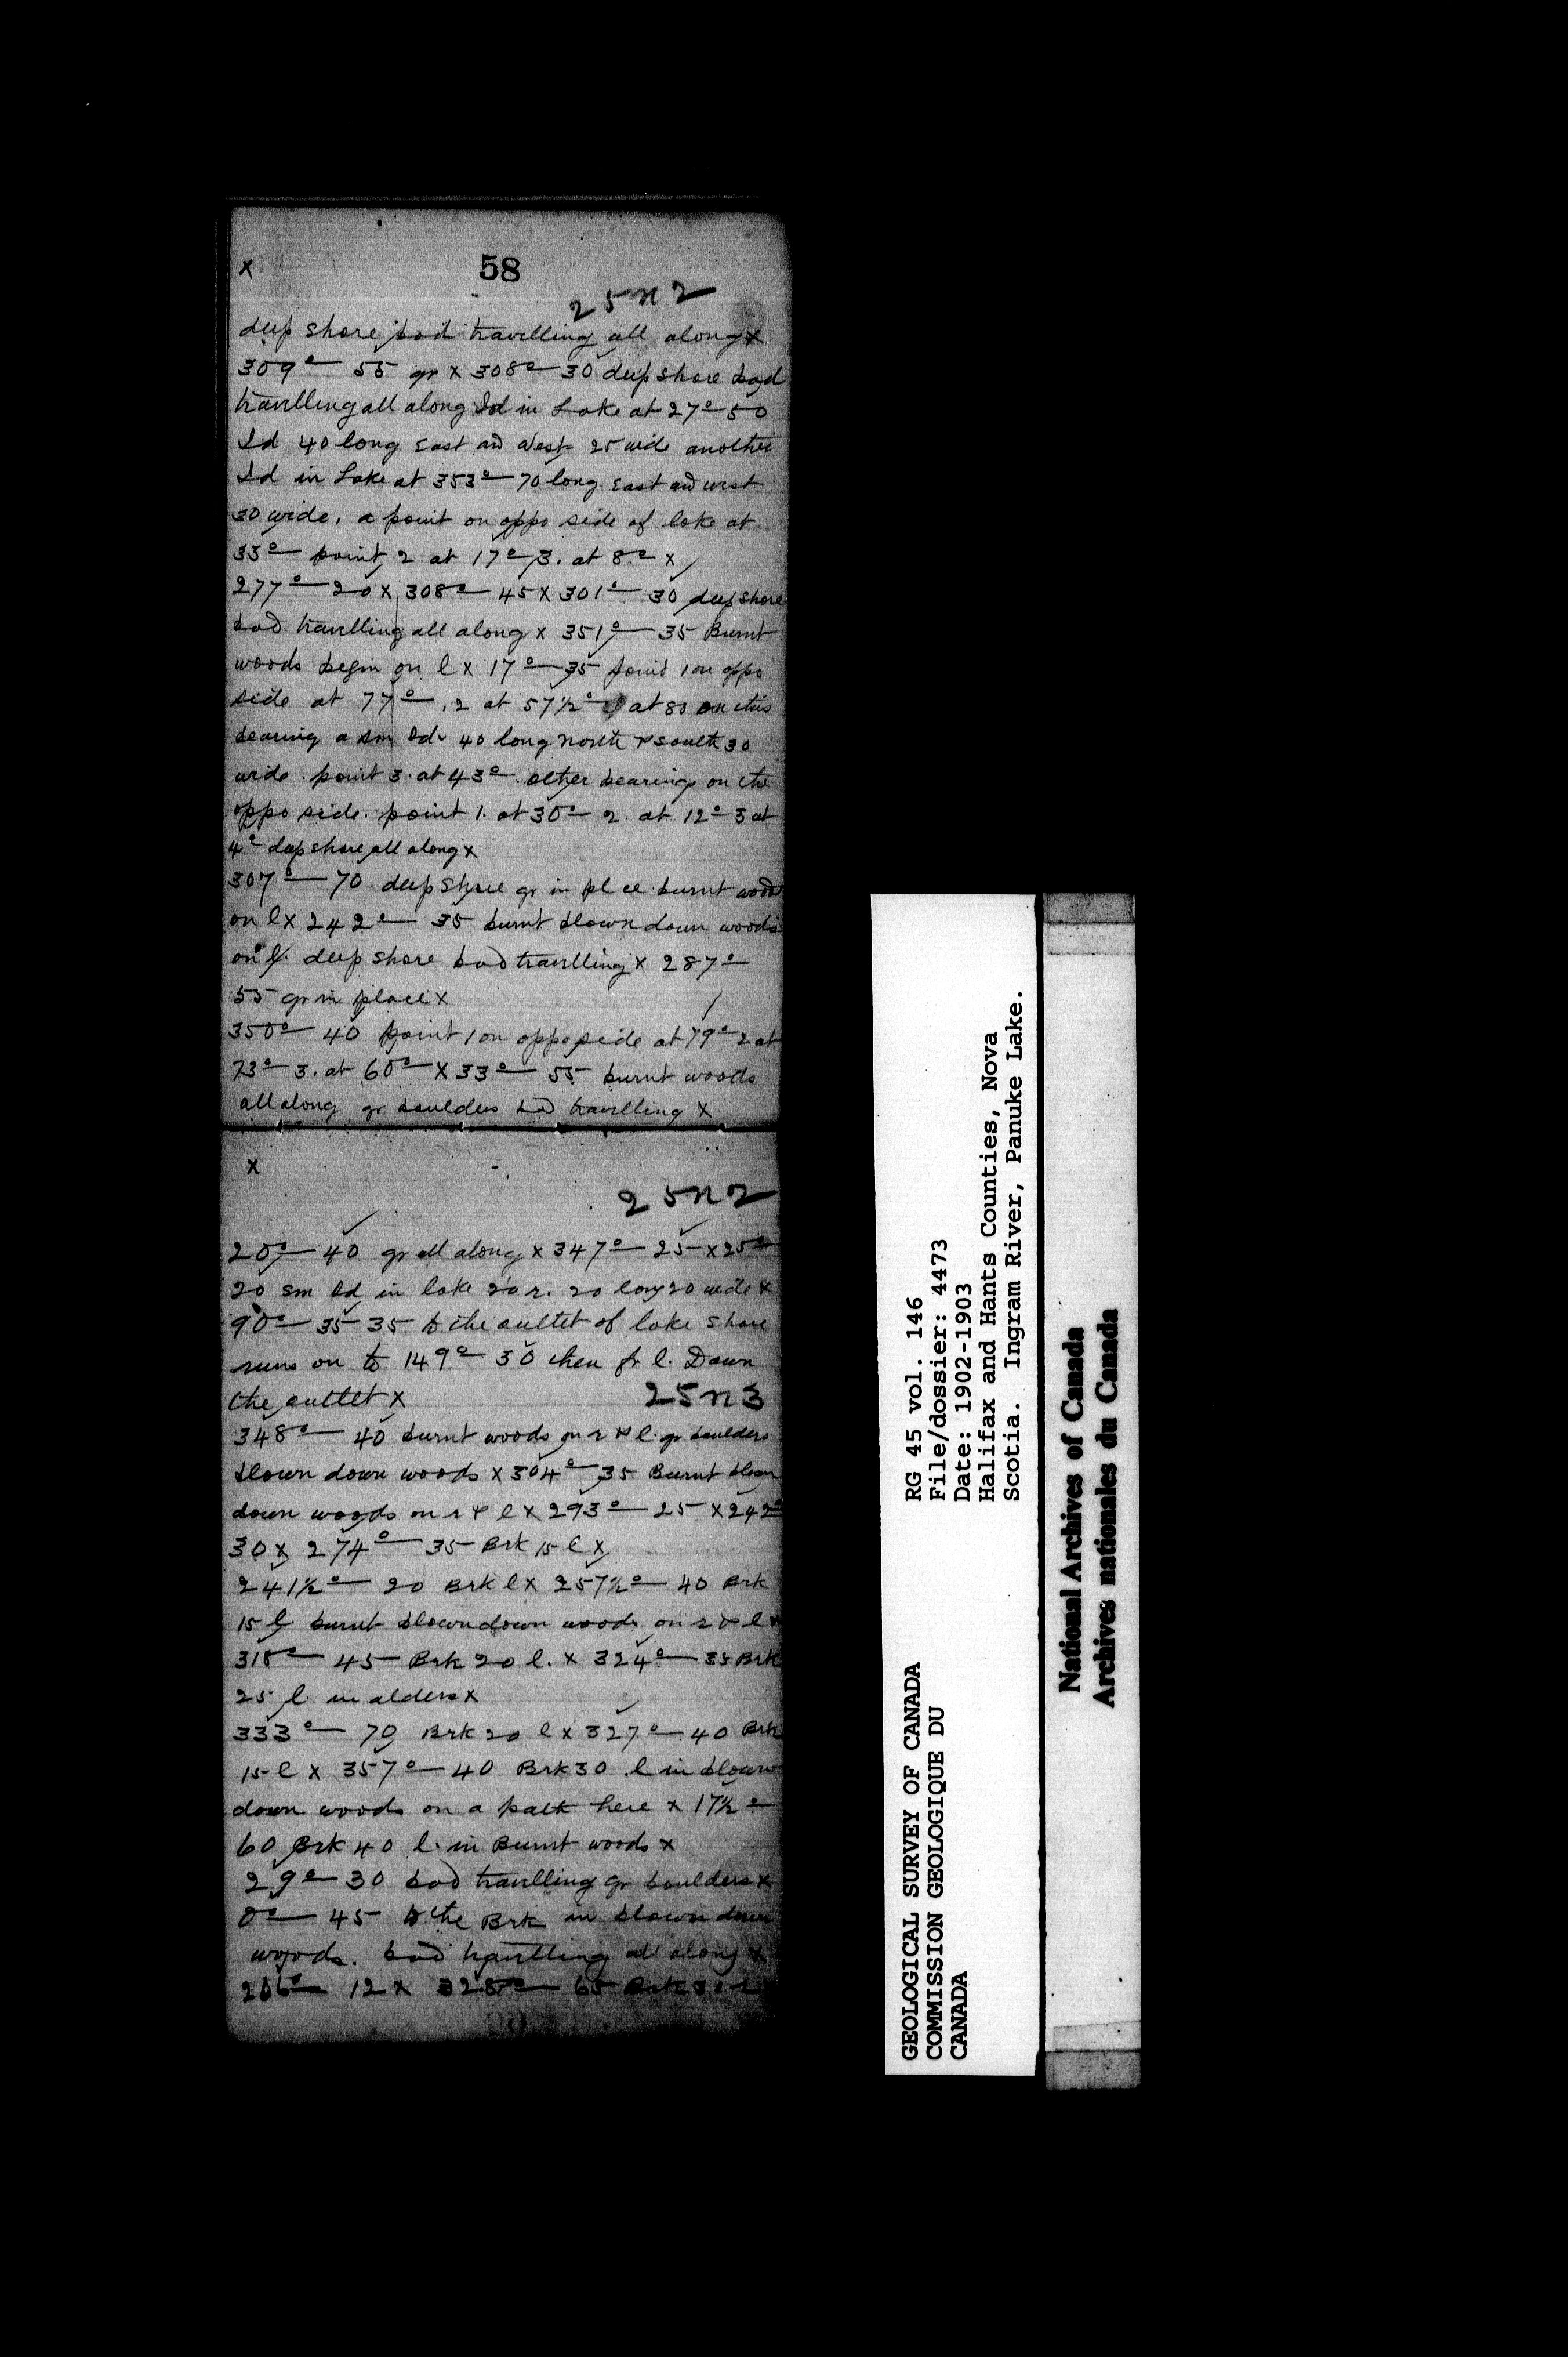 x
58
25 n 2
deep shore bad travelling all along x
309° 55 gr x 308° 30 deep shore bad
travelling all along Id in Lake at 27° 50
Id 40 long East and West 25 wide another
Id in Lake at 353° 70 long East and west
30 wide, a point on oppo side of lake at
33° point, 2 at 17° 3. at 8° x
277° 20 x 308° 45 x 301° 30 deep shore
bad travelling all along x 351° 35 Burnt
woods begin on l x 17° 35 point 1 on oppo
side at 77°, 2 at 57½° at 80 on this
bearing a sm Id. 40 long north & south 30
wide. point 3. at 43° other bearings on the
oppo side. point 1. at 30° 2. at 12° 3 at
4° deep shore all along x
307° 70 deep shore gr in place burnt woods
on l x 242° 35 burnt blown down woods
on l. deep shore bad travelling x 287°
55 gr in place x
350° 40 point 1 on oppo side at 79° 2 at
73° 3. at 60° x 33° 55 burnt woods
all along gr boulders bad travelling x
x
25 n 2
20° 40 gr all along x 347° 25 x 25°
20 sm Id in lake 20 r. 20 long 20 wide x
90° 35 35 to the outlet of lake shore
runs on to 149° 30 then fr l. Down
the outlet x
25 n 3
348° 40 burnt woods on r & l. gr boulders
blown down woods x 304° 35 Burnt blown
down woods on r & l x 293° 25 x 242°
30 x 274° 35 Brk 15 l x
241½° 20 Brk l x 257½° 40 Brk
15 l burnt blown down woods on r & l x
318° 45 Brk 20 l. x 324° 35 Brk
25 l. in alders x
333° 70 Brk 20 l x 327° 40 Brk
15 l x 357° 40 Brk 30 l in blown
down woods on a path here x 17½°
60 Brk 40 l. in Burnt woods x
29° 30 bad travelling gr boulders x
0° 45 to the Brk in blown down
woods. bad travelling all along x
12 x 328° 65 Brk 30
GEOLOGICAL SURVEY OF CANADA
COMMISSION GEOLOGIQUE DU
CANADA
RG 45 vol. 146
File/dossier: 4473
Date: 1902-1903
Halifax and Hants Counties, Nova
Scotia. Ingram River, Panuke Lake.
National Archives of Canada
Archives nationales du Canada